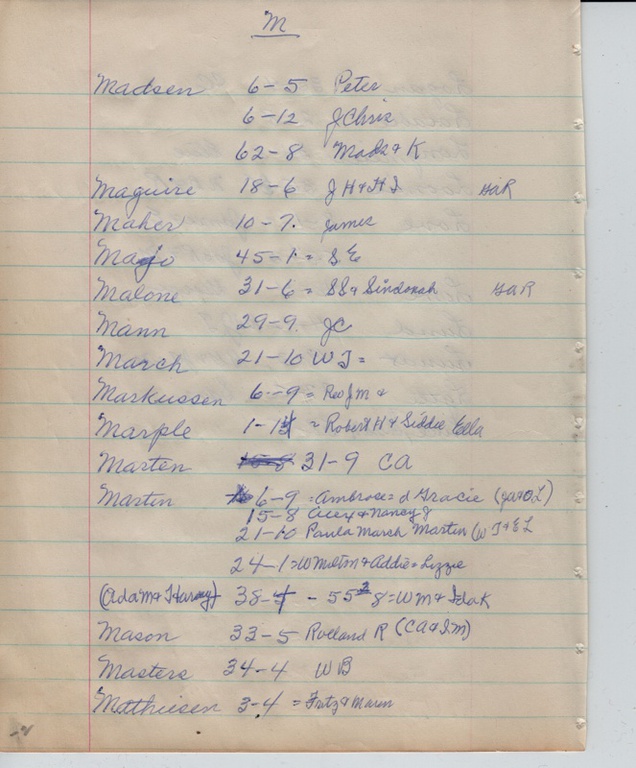 M
Madsen 6-5 Peter
6-12 J Chris
62-8 Mads & K
Maguire 18-6 J H & H J GAR
Maher 10-7. James
Majo 45-1 = S E
Malone 31-6 = SS & Sindonah GAR
Mann 29-9. JC
March 21-10 W J =
Markussen 6-9 = Rev J M &
Marple 1-14 = Robert H & Siddie Ella
Marten 31-9 CA
Martin 6-9 = Ambrose = d Gracie (JA & OL)
15-8 Alex & Nancy J
21-10 Paula March Martin (W J & E L
24-1 = W Milt m & Addie = Lizzie
(Adam & Harvey) 38-4 - 55 2 8 = W M & Ida K
Mason 33-5 Rolland R (CA & I M)
Masters 34-4 W B
Matthiesen 3-4 = Fritz & Maren